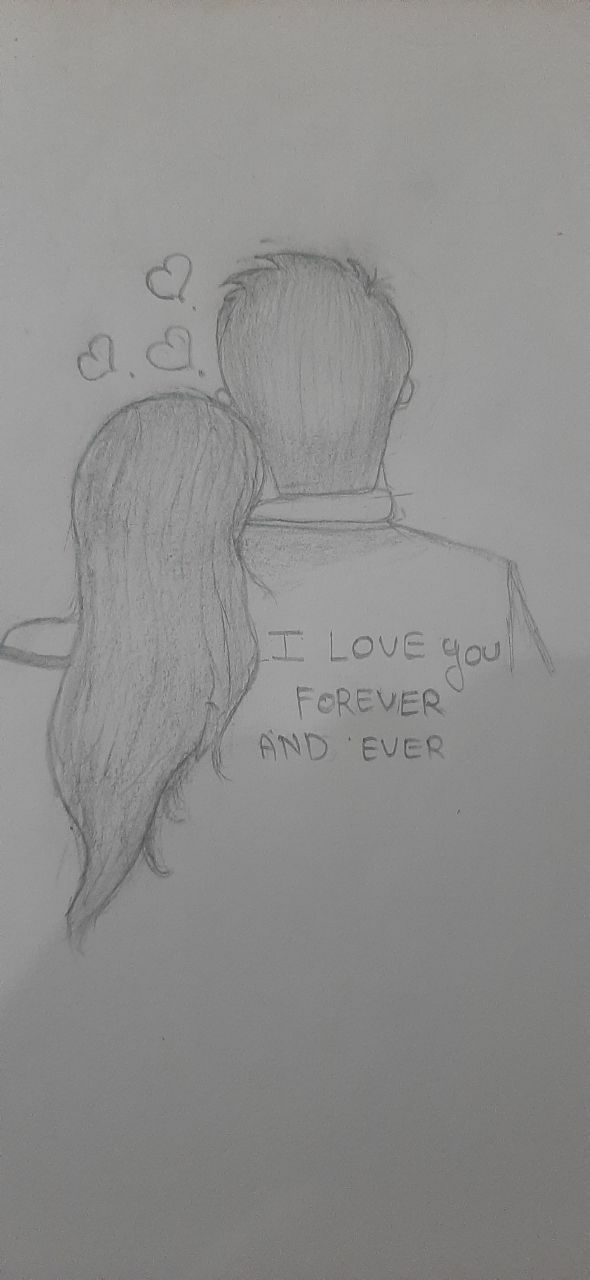 I LOVE you
FOREVER
AND EVER